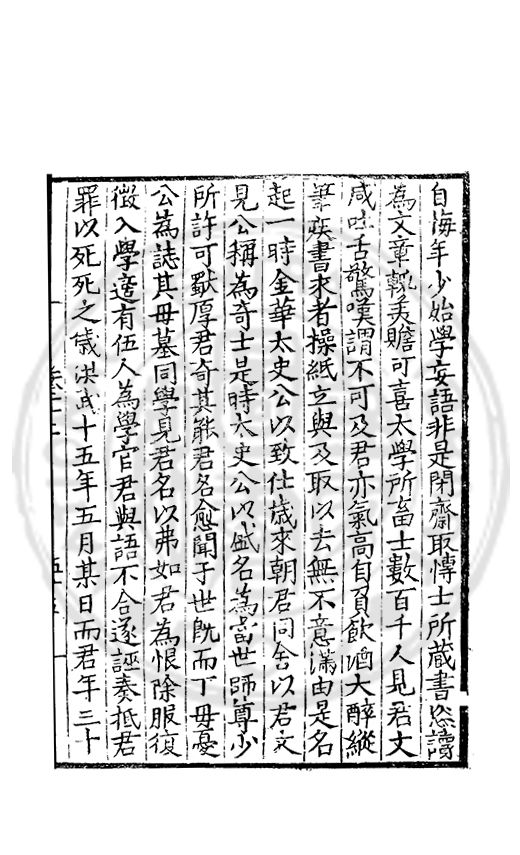 自悔年少始學妄語非是閉齋取愽士所蔵書恣讀
為文章輒美贍可喜太學所畜士數百千人見君文
咸吐舌驚嘆謂不可及君亦氣高自負飲酒大醉縱
筆疾書求者操紙立與及取以去無不意滿由是名
起一時金華太史公以致仕歳來朝君同舍以君文
見公稱為奇士是時太史公以盛名為當世師尊少
所許可獸厚君奇其能君名愈聞于世旣而丁毋憂
公為誌其母墓同學見君名以弗如君為恨除服復
徵入學適有伍人為學官君與語不合遂誣奏抵君
罪以死死之歳洪武十五年五月某日而君年三十